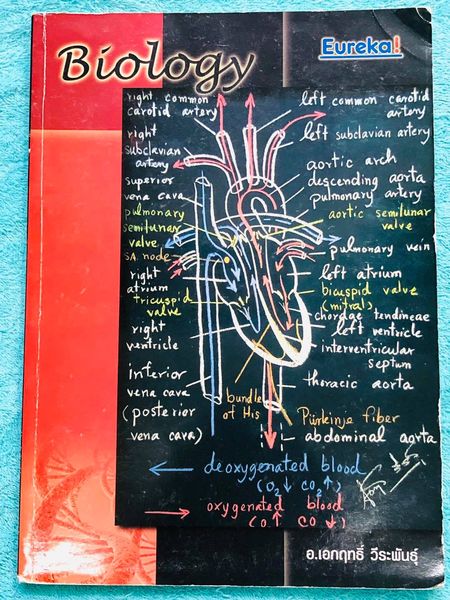 Biology
Eureka!
right common
carotid artery
right
subclavian
artery
superior
vena cava
pulmonary
semilunar
valve
SA node
right
atrium
tricuspid
valve
right
ventricle
inferior
vena cava
(posterior
vena cava)
left common carotid
artery
left subclavian artery
aortic arch
descending aorta
pulmonary artery
aortic semilunar
valve
pulmonary vein
left atrium
bicuspid valve
(mitral)
chordae tendineae
left ventricle
interventricular
septum
thoracic aorta
bundle
of His
Purkinje fiber
abdominal aorta
deoxygenated blood
(O₂↓ CO₂↑)
oxygenated blood
(O₂↑ CO₂↓)
อ.เอกฤทธิ์ วีระพันธุ์